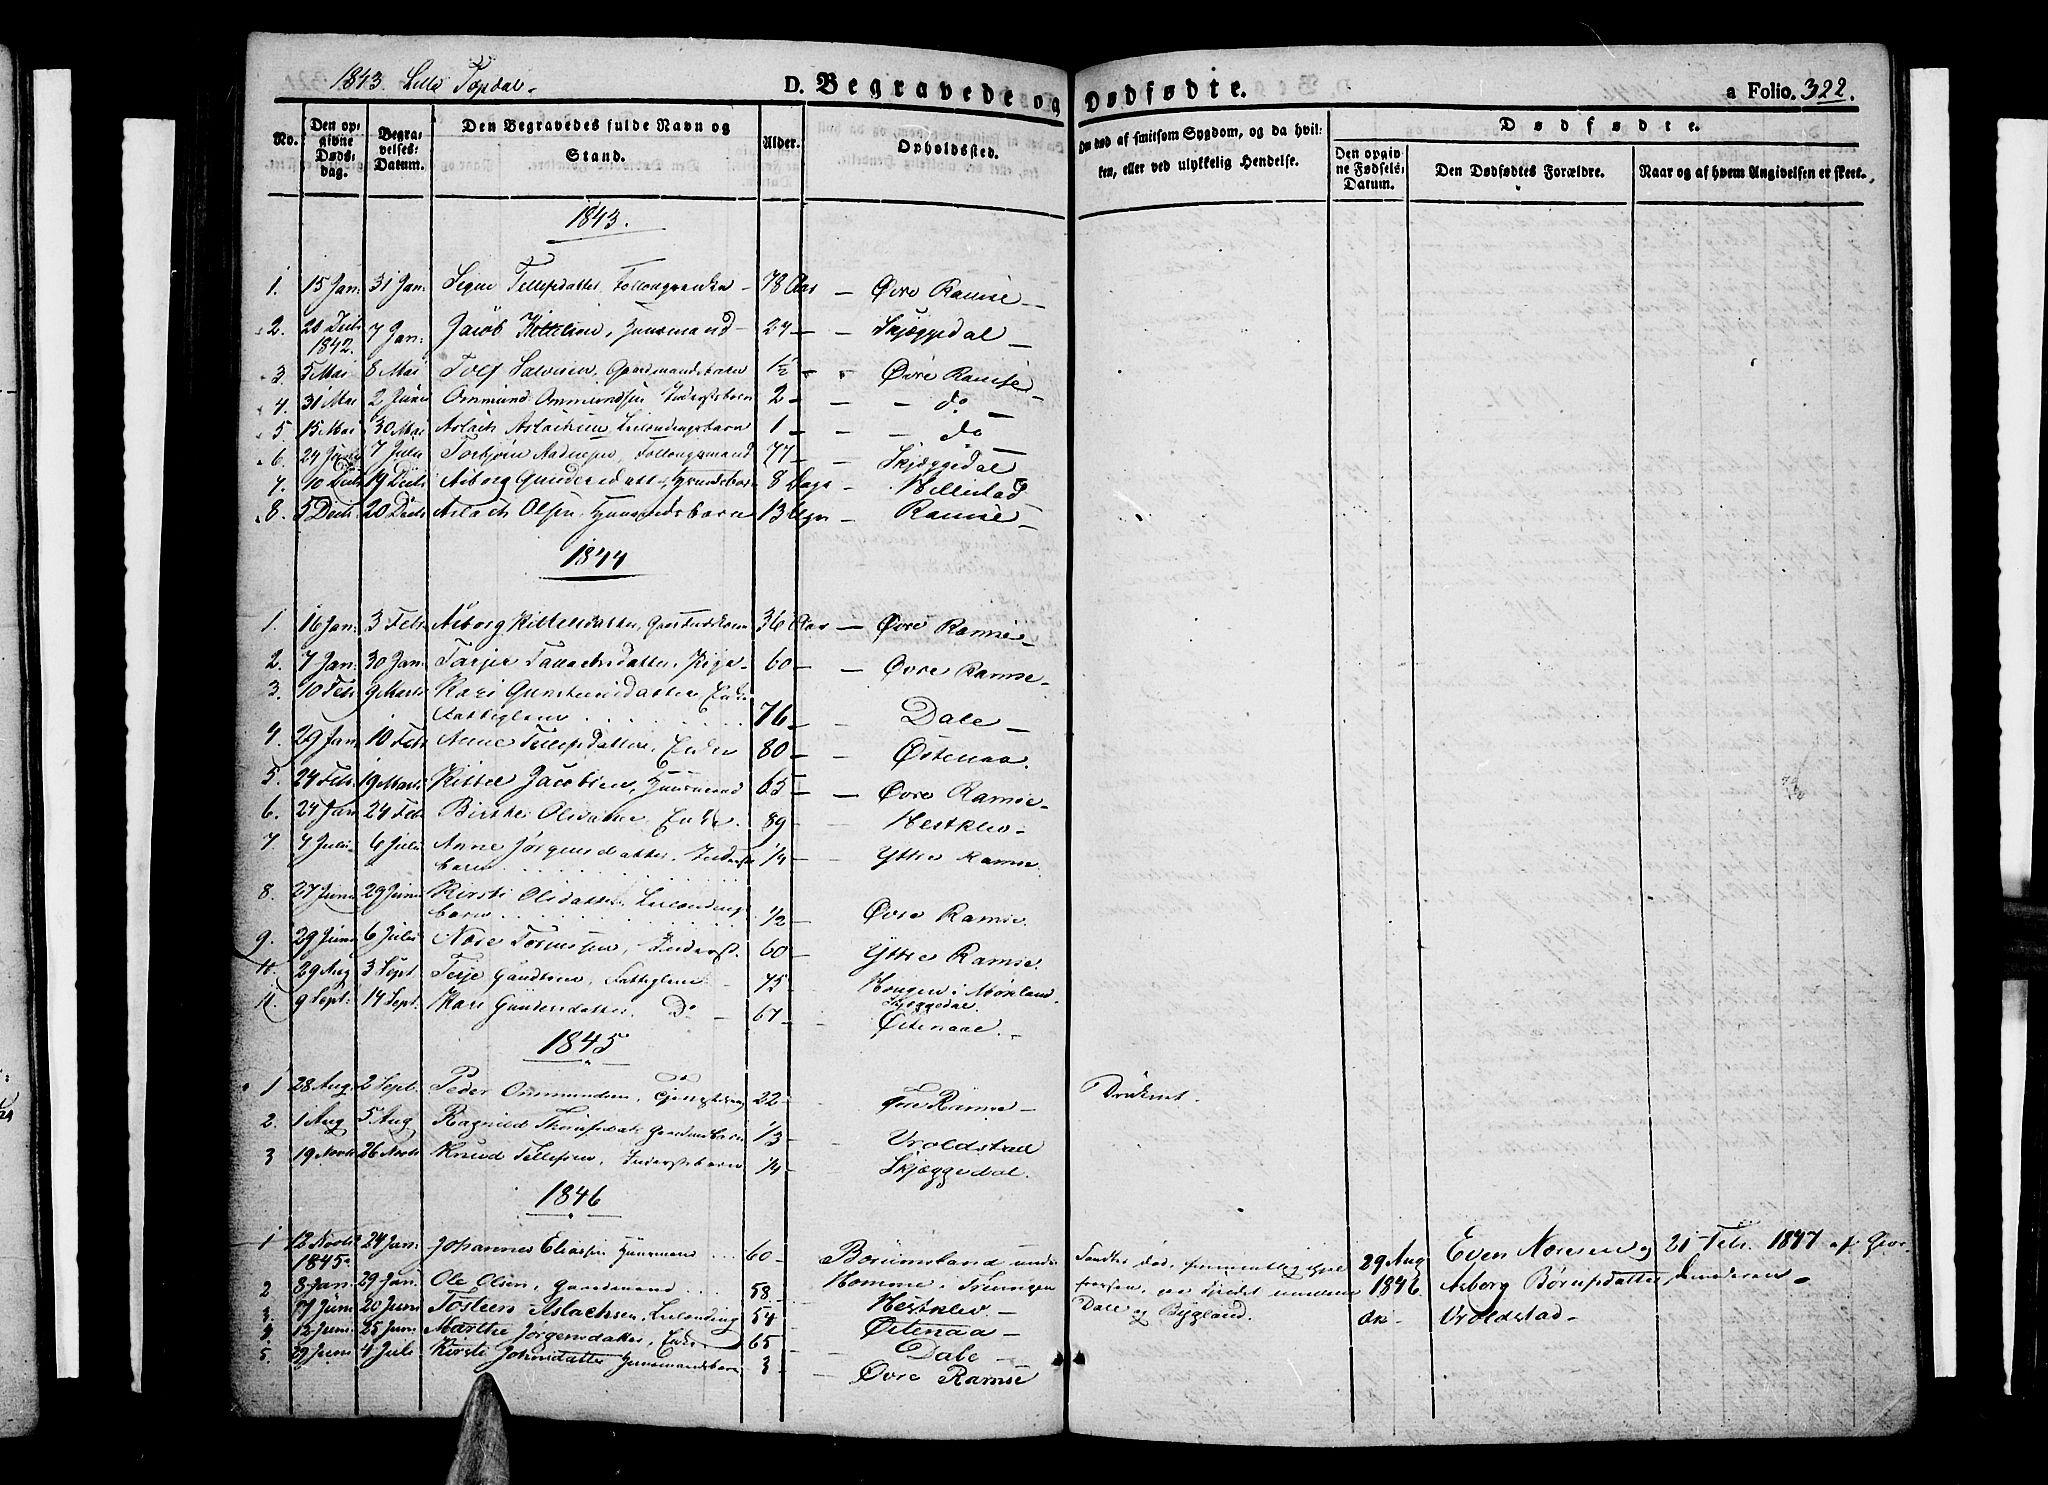 1843. Lille Topdal.
D. Begravede og Dødfødte.
a Folio. 322.
No. Den opgivne Dødsdag. Begravelses Datum. Den Begravedes fulde Navn og Stand. Alder. Opholdssted. Om død af smitsom Sygdom, og da hvilken, eller ved ulykkelig Hendelse. Dødfødte. Den opgivne Fødsels Datum. Den Dødfødtes Forældre. Naar og af hvem Angivelsen er skeet.
1843.
1. 15 Jan: 31 Jan: Signe Tellefsdatter 78 Aar - Øvre Ramse -
2. 1842. 7 Jan: Jacob Kittelsen, Huusmand 24 - Skjæggedal -
3. 5 Mai 8 Mai Tolf Salvesen, Gaardmandsbarn 1/2 - Øvre Ramse -
4. 31 Mai 2 Juni Ommund Ommundsen Inderstsbarn 2 - - do -
5. 15 Mai 30 Mai Aslach Aslachsen Leilendingsbarn 1 - - do -
6. 24 Juni 7 Julii Torbjørn 77 - Skjæggedal
7. 10 Decb 19 Decb Asborg Gundersdatter, Huusmdsbarn 8 Dage - Hillestad
8. 5 Decb 20 Decb Aslach Olsen, Huusmdsbarn 13 Uger - Ramse -
1844
1. 16 Jan: 3 Febr Asborg Kittelsdatter, 36 Aar - Øvre Ramse -
2. 7 Jan: 30 Jan: Tarjer Tallachsdatter, Pige 60 - - Øvre Ramse -
3. 10 Febr 9 Marts Kari Gunstensdatter Enke
Fattiglem 76 - - Dale -
4. 29 Jan: 10 Febr Anne Tellefsdatter, Enke 80 - - Østenaa.
5. 24 Febr 19 Marts Kittel Jacobsen, Huusmand 65 - - Øvre Ramse -
6. 24 Jan 24 Febr Birthe Olsdatter Enke 89 - Hestklev -
7 4 Julii 6 Julii Anne Jørgensdatter, Inderst
barn 1/4 - - Yttre Ramse.
8. 27 Juni 29 Juni Kirsti Olsdatter, Leilendings
barn 1/2 - - Øvre Ramse -
9. 29 Juni 6 Julii Nære Tørensen, Inderst. 60 - - Yttre Ramse.
29 Aug 3 Sept. Terje Gundersen, Fattiglem - 75 - Hougen i
Skjæggedal.
11. 9 Sept: 14 Sept. Kari Gundersdatter. Do - 67 - - Østenaae. -
1845
1 28 Aug 2 Sept. Peder Ommundsen, 22 - Øvre Ramse - Druknet.
2. 1 Aug 5 Aug Ragnild 13 - Vroldstad
3 19 Novb 26 Novb Knud Tellefsen, Inderstsbarn 1/4 - Skjæggedal.
1846
1 12 Novb 24 Jan: Johannes Eliassen Huusmand 60 - under
1845.
2 8 Jan: 29 Jan: Ole Olsen, Gaardmand 58 - Homme i
3. 17 Juni 20 Juni Tosteen Aslachsen, Leilending 54 - Hestklev -
4 12 Juni 25 Juni Marthe Jørgensdatter, Enke 65 - Østenaa -
5. 29 Juni 4 Juli Kirsti Johnsdatter Huusmandsbarn 3 - - Dale -
- Øvre Ramse
død,
Dale og Bygland.
29 Aug Even Næresen og 21 Febr. 1847 af
1846 Asborg
Vroldstad -